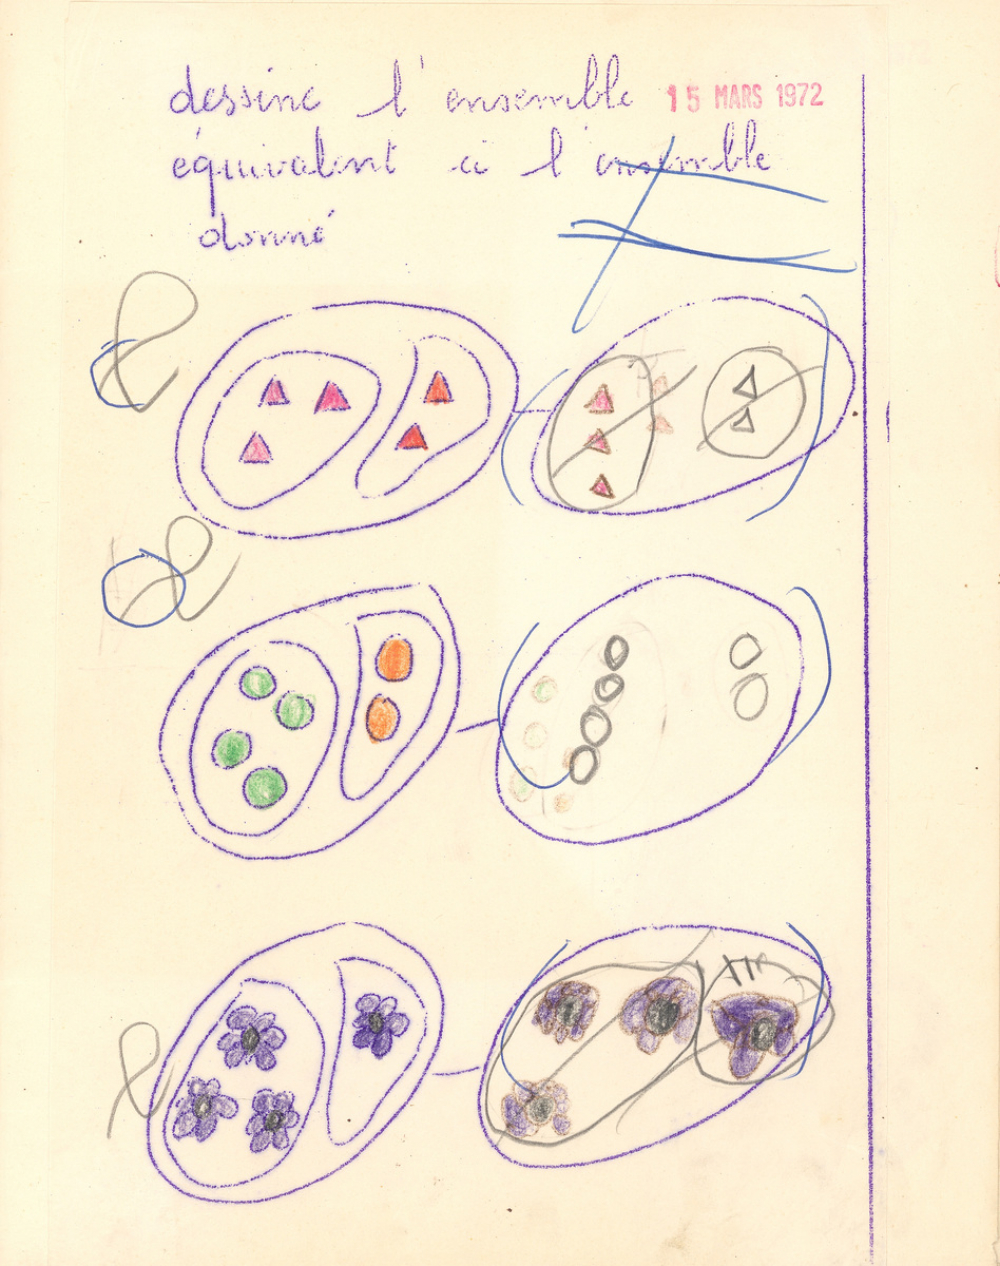 dessine l'ensemble 15 MARS 1972
équivalent à l'ensemble
donné